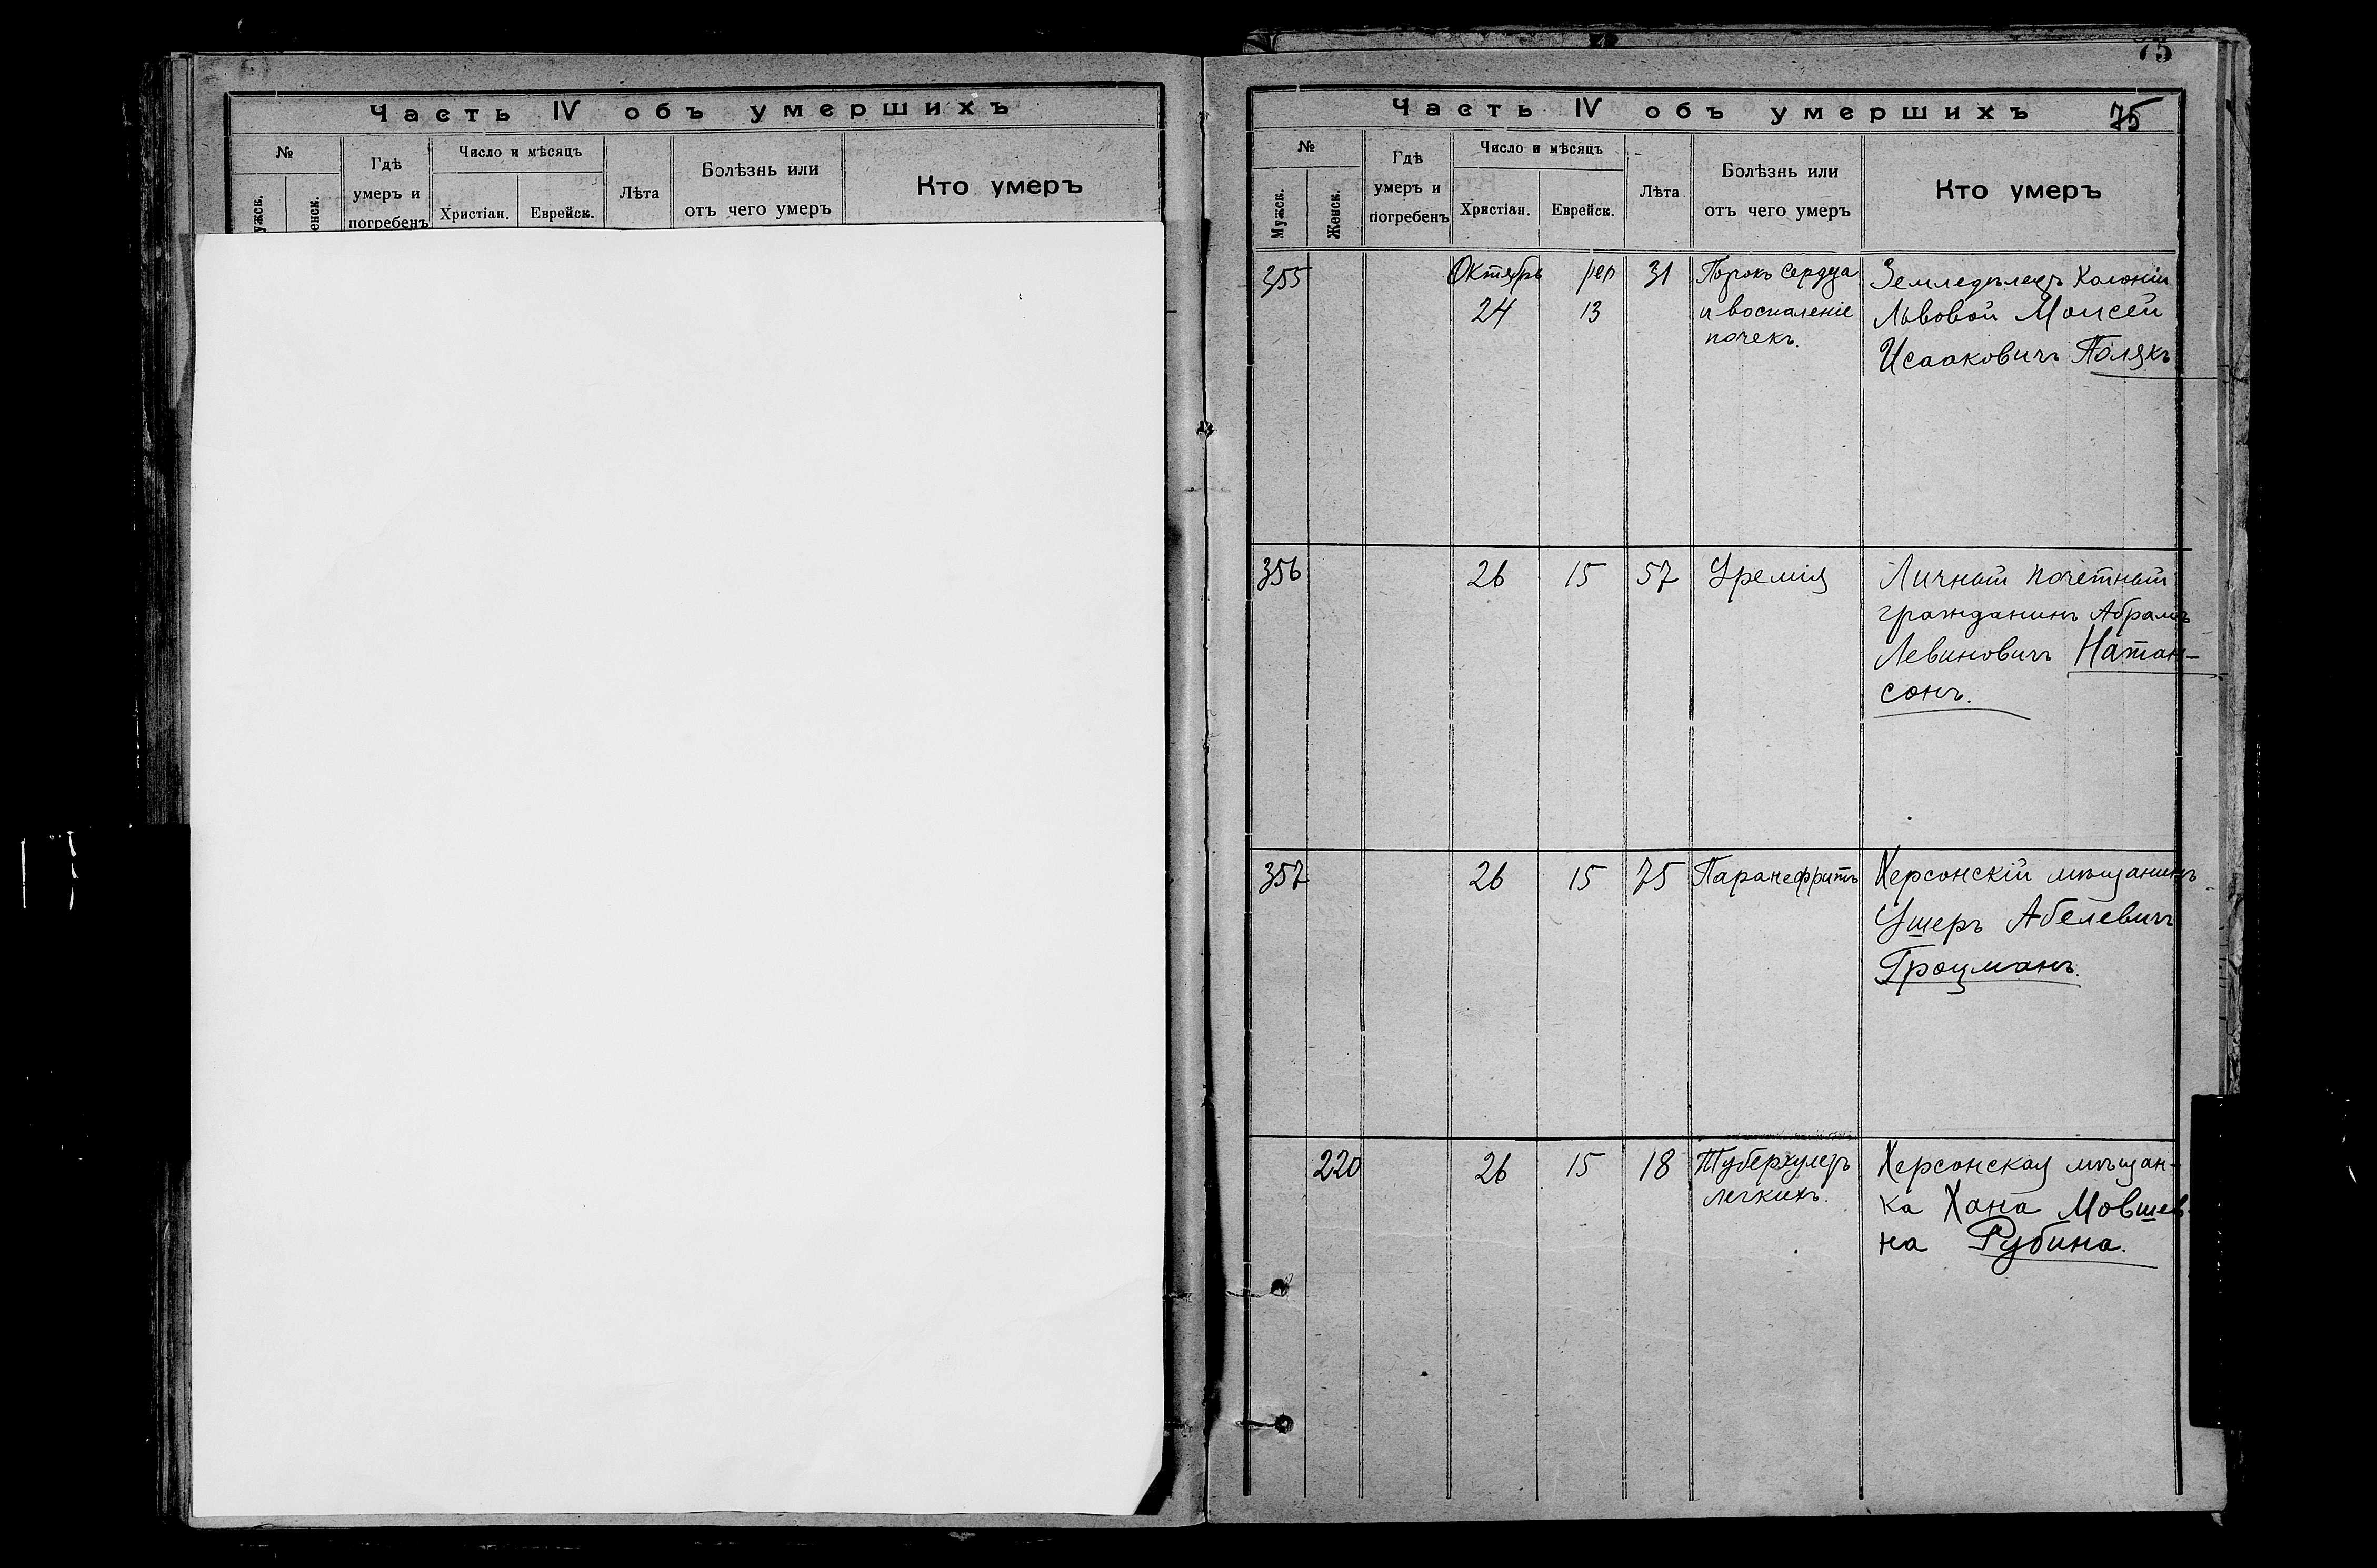 Часть IV объ умершихъ
№
Гдѣ умеръ и погребенъ
Число и мѣсяцъ
Христіан.
Еврейск.
Лѣта
Болѣзнь или отъ чего умеръ
Кто умеръ
75
Часть IV объ умершихъ
75
№
Мужск.
Женск.
Гдѣ умеръ и погребенъ
Число и мѣсяцъ
Христіан.
Еврейск.
Лѣта
Болѣзнь или отъ чего умеръ
Кто умеръ
355 Октябрь 31 Порокъ сердца Земледѣлецъ Колоніи
24 13 и воспаленіе Львовой Моисей
почекъ. Исааковичъ Полякъ
356 26 15 57 Уремія Личный почетный
гражданинъ Абрамъ
Левиновичъ Натан-
сонъ.
357 26 15 75 Паранефритъ Херсонскій мѣщанинъ
Ушеръ Абелевичъ
Гроцманъ.
220 26 15 18 Туберкулезъ Херсонская мѣщан-
легкихъ. ка Хана Мовшев-
на Рубина.